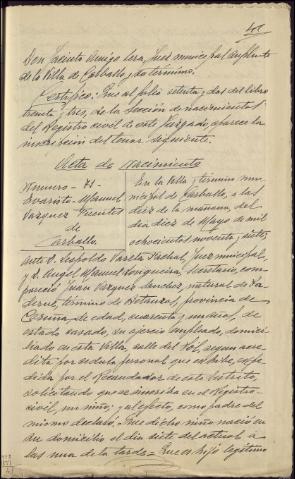 Don Jacinto Amigo Lera, Juez municipal suplente
de la Villa de Carballo, y su término.
Certifico: Que al folio setenta y dos del libro
treinta y tres, de la Sección de nacimientos
del Registro civil de este Juzgado, aparece la
inscripción del tenor siguiente.
Acta de nacimiento
Número - 71 -
Evaristo Manuel
Vazquez
de
Carballo
En la Villa y término mu-
nicipal de Carballo, a las
diez de la mañana, del
día diez de Mayo de mil
ochocientos noventa y siete;
ante D. Leopoldo Varela Juez municipal,
y D. Angel Manuel Secretario, com-
pareció Juan Vazquez Sanchez, natural de
término de provincia de
Coruña, de edad, cuarenta y un años, de
estado casado, su ejercicio empleado, domici-
liado en esta Villa calle del Sol, segun acre-
dita por cedula personal que exhibe, expe-
dida por el Recaudador de este distrito,
solicitando que se inscriba en el Registro
civil, un niño; y al efecto, como padre del
mismo declaró: Que dicho niño nació en
su domicilio el dia siete del actual a
las una de la tarde = Que es hijo legítimo